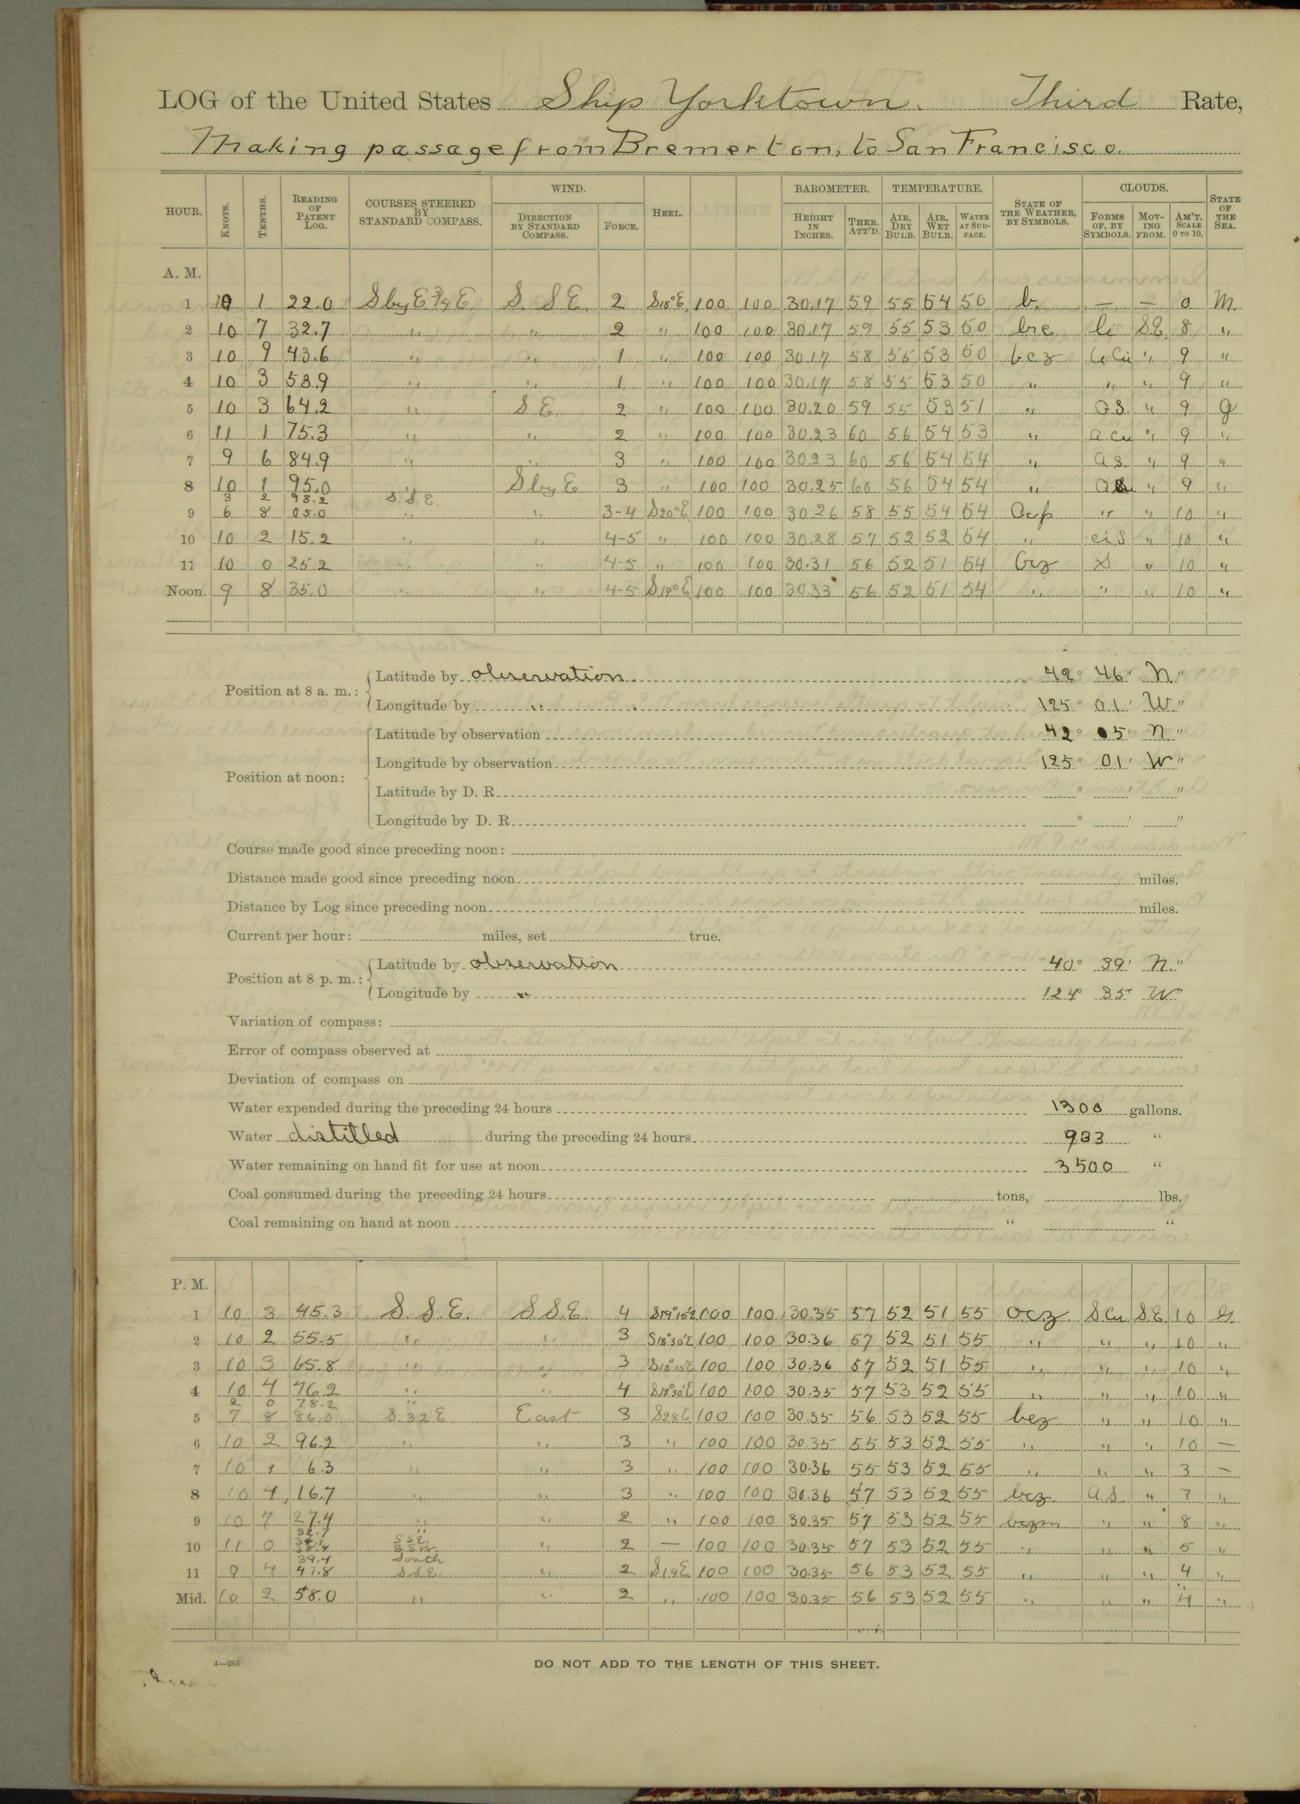 LOG of the United States Ship Yorktown. Third Rate,
Making passage from Bremerton, to San Francisco.
HOUR. KNOTS. TENTHS. READING OF PATENT LOG. COURSES STEERED BY STANDARD COMPASS. WIND. DIRECTION BY STANDARD COMPASS. FORCE. HEEL. BAROMETER. HEIGHT IN INCHES. THER. ATT'D. TEMPERATURE. AIR, DRY BULB. AIR, WET BULB. WATER AT SURFACE. STATE OF THE WEATHER, BY SYMBOLS. CLOUDS. FORMS OF, BY SYMBOLS. MOVING FROM. AM'T. SCALE 0 TO 10. STATE OF THE SEA.
A. M.
1 10 1 22.0 S by E 3/4 E. S. S E. 2 S18°E. 100 100 30.17 59 55 54 50 b. — — 0 M.
2 10 7 32.7 " " 2 " 100 100 30.17 59 55 53 50 S.E. 8 "
3 10 9 43.6 " " 1 " 100 100 30.17 58 55 53 50 bcz " 9 "
4 10 3 53.9 " " 1 " 100 100 30.17 58 55 53 50 " " " 9 "
5 10 3 64.2 " S E. 2 " 100 100 30.20 59 55 53 51 " a.s. " 9 g
6 11 1 75.3 " " 2 " 100 100 30.23 60 56 54 53 " a cu " 9 "
7 9 6 84.9 " " 3 " 100 100 30.23 60 56 54 54 " a s. " 9 "
8 10 1 95.0 " S by E 3 " 100 100 30.25 60 56 54 54 " " 9 "
3 2 98.2 S S E.
9 6 8 05.0 " " 3-4 S20°E 100 100 30.26 58 55 54 54 " " 10 "
10 10 2 15.2 " " 4-5 " 100 100 30.28 57 52 52 54 " ci.s " 10 "
11 10 0 25.2 " " 4-5 " 100 100 30.31 56 52 51 54 S " 10 "
Noon. 9 8 35.0 " " 4-5 S19°E 100 100 30.33 56 52 51 54 " " " 10 "
Position at 8 a. m.: Latitude by observation. 42° 46' N "
Longitude by " 125° 01' W "
Position at noon: Latitude by observation 42° 05' N "
Longitude by observation 125° 01' W "
Latitude by D. R. ° ' "
Longitude by D. R. ° ' "
Course made good since preceding noon:
Distance made good since preceding noon miles.
Distance by Log since preceding noon miles.
Current per hour: miles, set true.
Position at 8 p. m.: Latitude by observation 40° 39' N. "
Longitude by " 124° 35' W "
Variation of compass:
Error of compass observed at
Deviation of compass on
Water expended during the preceding 24 hours 1300 gallons.
Water distilled during the preceding 24 hours 933 "
Water remaining on hand fit for use at noon 3500 "
Coal consumed during the preceding 24 hours tons, lbs.
Coal remaining on hand at noon " "
P. M.
1 10 3 45.3 S. S. E. S S E. 4 100 100 30.35 57 52 51 55 ocz S.Cu S.E. 10
2 10 2 55.5 " " 3 S18°30'E 100 100 30.36 57 52 51 55 " " " 10 "
3 10 3 65.8 " " 3 S18°15'E 100 100 30.36 57 52 51 55 " " " 10 "
4 10 4 76.2 " " 4 S18°30'E 100 100 30.35 57 53 52 55 " " " 10 "
2 0 78.2 "
5 7 8 86.0 S.32E East 3 S28E 100 100 30.35 56 53 52 55 bcz " " 10 "
6 10 2 96.2 " " 3 " 100 100 30.35 55 53 52 55 " " " 10 —
7 10 1 6.3 " " 3 " 100 100 30.36 55 53 52 55 " " " 3 —
8 10 4 16.7 " " 3 " 100 100 30.36 57 53 52 55 bcz a.s. " 7 "
9 10 7 27.4 " " 2 " 100 100 30.35 57 53 52 55 bczm " " 8 "
10 11 0 S S E. " 2 — 100 100 30.35 57 53 52 55 " " " 5 "
39.4 South
11 9 4 47.8 S S E. " 2 S19E 100 100 30.35 56 53 52 55 " " " 4 "
Mid. 10 2 58.0 " " 2 " 100 100 30.35 56 53 52 55 " " " 4 "
4—265
DO NOT ADD TO THE LENGTH OF THIS SHEET.